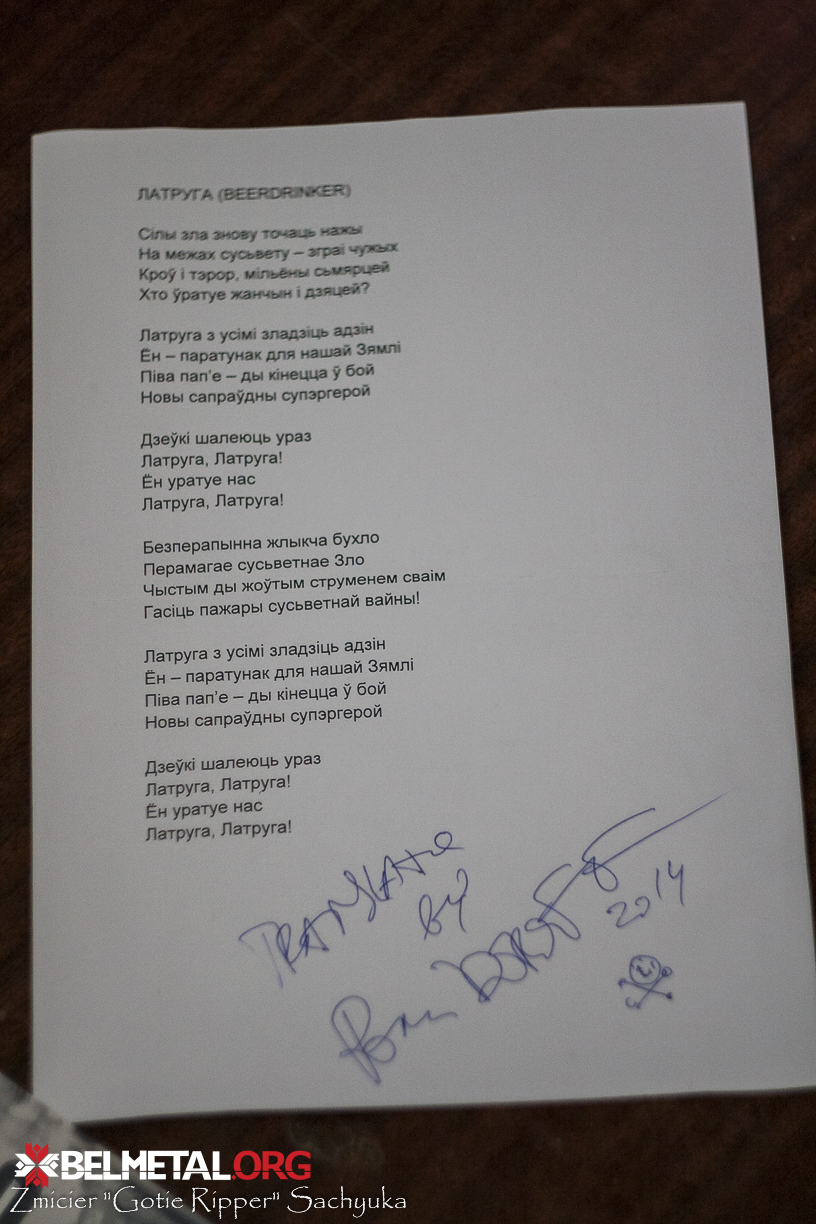 ЛАТРУГА (BEERDRINKER)
Сілы зла знову точаць нажы
На межах сусьвету – зграі чужых
Кроў і тэрор, мільёны сьмярцей
Хто ўратуе жанчын і дзяцей?
Латруга з усімі зладзіць адзін
Ён – паратунак для нашай Зямлі
Піва пап'е – ды кінецца ў бой
Новы сапраўдны супэргерой
Дзеўкі шалеюць ураз
Латруга, Латруга!
Ён уратуе нас
Латруга, Латруга!
Безперапынна жлыкча бухло
Перамагае сусьветнае Зло
Чыстым ды жоўтым струменем сваім
Гасіць пажары сусьветнай вайны!
Латруга з усімі зладзіць адзін
Ён – паратунак для нашай Зямлі
Піва пап'е – ды кінецца ў бой
Новы сапраўдны супэргерой
Дзеўкі шалеюць ураз
Латруга, Латруга!
Ён уратуе нас
Латруга, Латруга!
BY
2014
BELMETAL.ORG
Zmicier "Gotie Ripper" Sachyuka